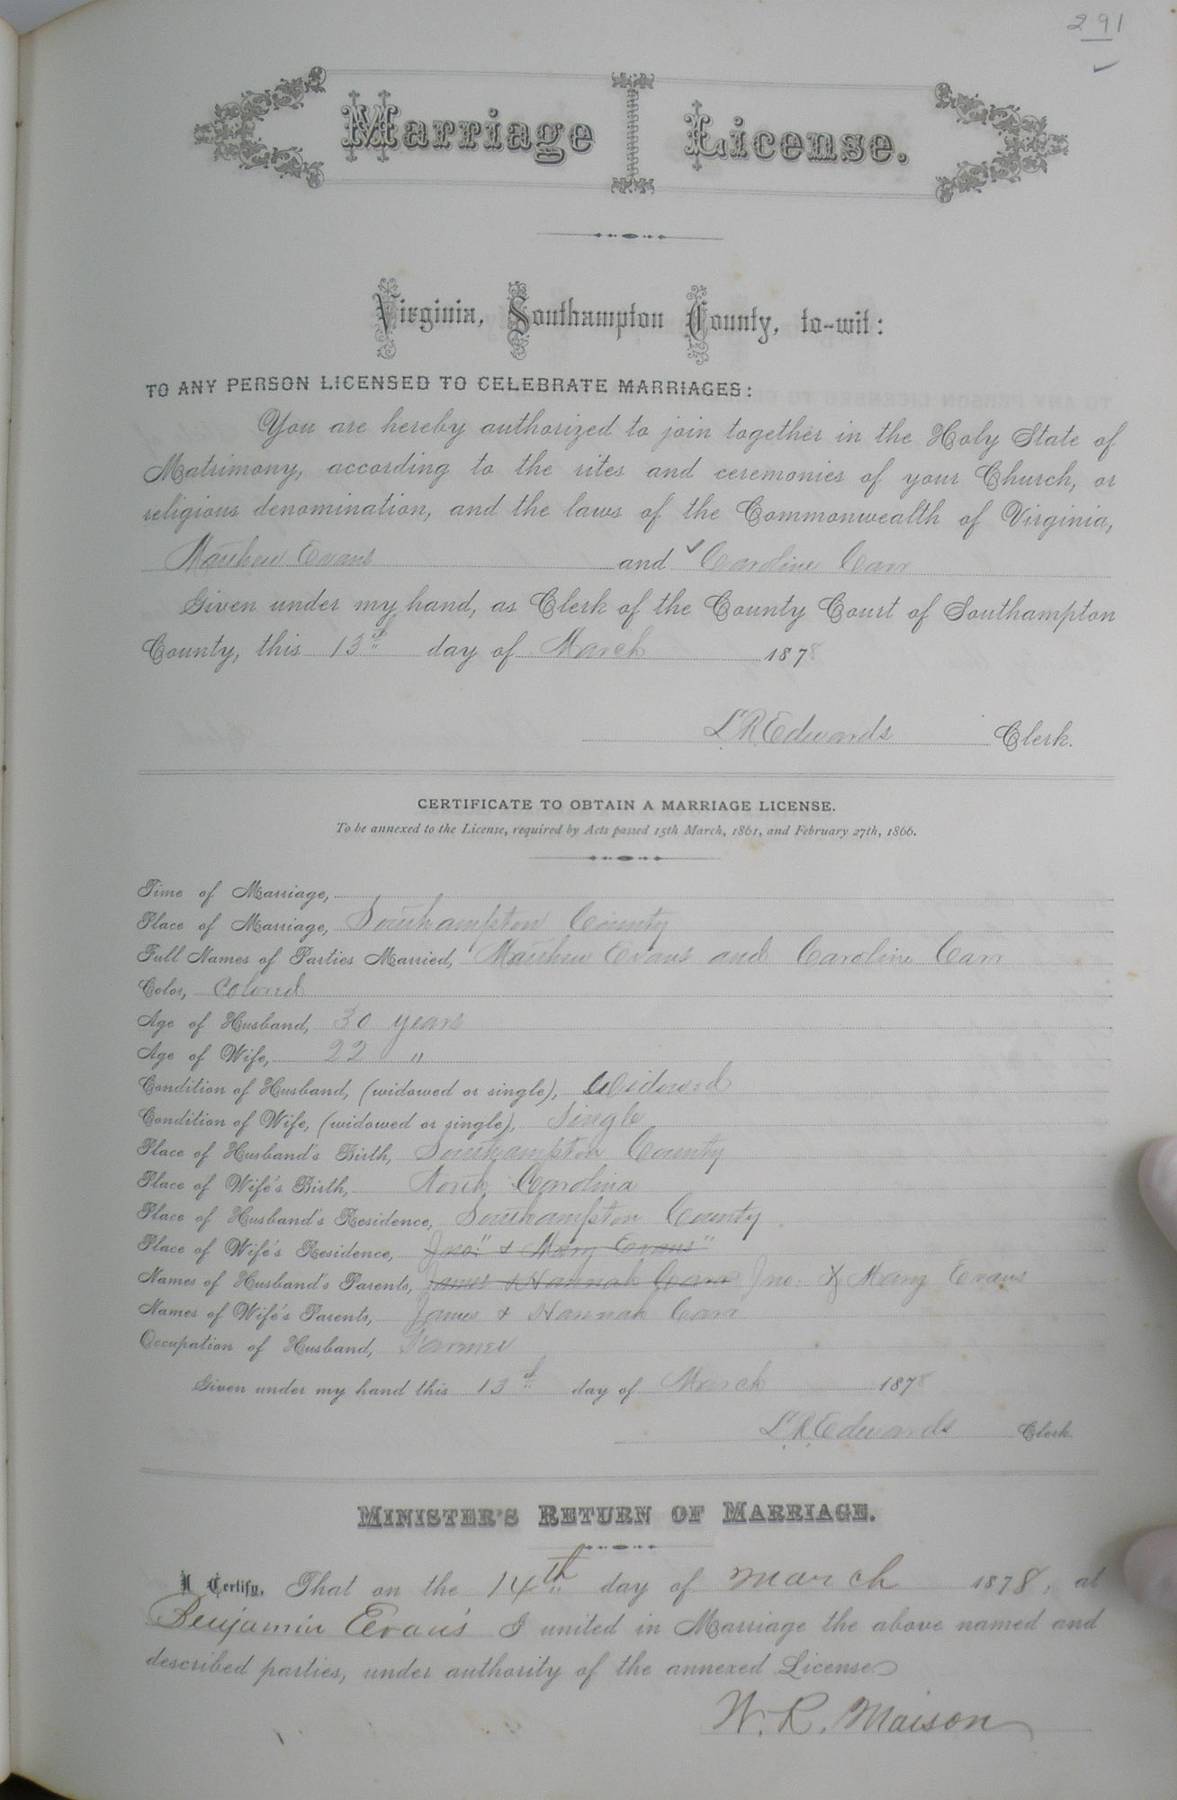 291
Marriage License.
Virginia, Southampton County, to-wit:
TO ANY PERSON LICENSED TO CELEBRATE MARRIAGES:
You are hereby authorized to join together in the Holy State of
Matrimony, according to the rites and ceremonies of your Church, or
religious denomination, and the laws of the Commonwealth of Virginia,
Matthew Evans and Caroline Carr
Given under my hand, as Clerk of the County Court of Southampton
County, this 13th day of March 1878
L. R. Edwards Clerk.
CERTIFICATE TO OBTAIN A MARRIAGE LICENSE.
To be annexed to the License, required by Acts passed 15th March, 1861, and February 27th, 1866.
Time of Marriage,
Place of Marriage, Southampton County
Full Names of Parties Married, Matthew Evans and Caroline Carr
Color, Colored
Age of Husband, 30 years
Age of Wife, 22 "
Condition of Husband, (widowed or single), Widowed
Condition of Wife, (widowed or single), Single
Place of Husband's Birth, Southampton County
Place of Wife's Birth, North Carolina
Place of Husband's Residence, Southampton County
Place of Wife's Residence, Jno. " & Mary Evans "
Names of Husband's Parents, James & Hannah Carr Jno. & Mary Evans
Names of Wife's Parents, James & Hannah Carr
Occupation of Husband, Farmer
Given under my hand this 13th day of March 1878
L. R. Edwards Clerk
MINISTER'S RETURN OF MARRIAGE.
I Certify, That on the 14th day of March 1878, at
Benjamin Evans I united in Marriage the above named and
described parties, under authority of the annexed License
W. R. Maison